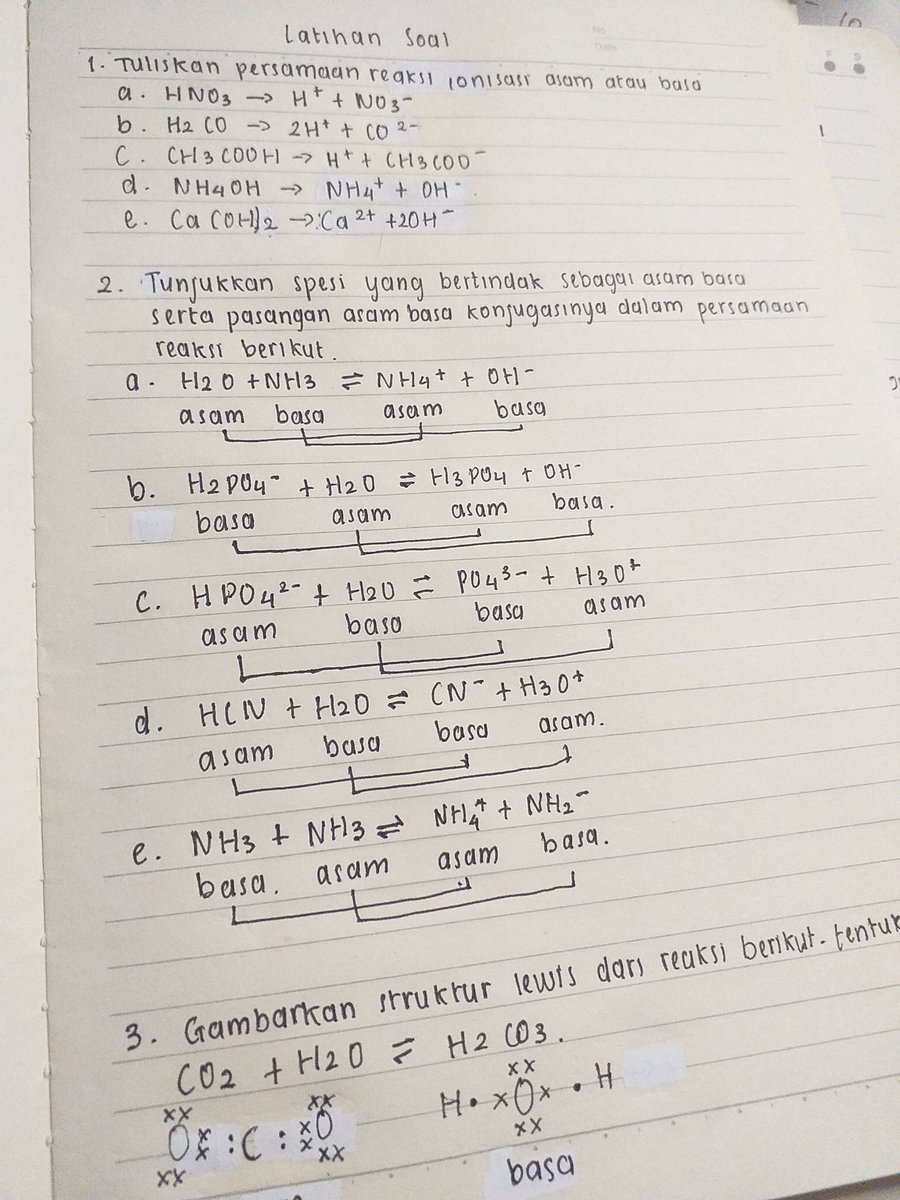 Latihan Soal
1. Tuliskan persamaan reaksi ionisasi asam atau basa
a. HNO3 → H+ + NO3-
b. H2 CO → 2H+ + CO 2-
C. CH3COOH → H+ + CH3COO-
d. NH4OH → NH4+ + OH-
e. Ca(OH)2 → Ca2+ + 2OH-
2. Tunjukkan spesi yang bertindak sebagai asam basa
serta pasangan asam basa konjugasinya dalam persamaan
reaksi berikut.
a. H2O + NH3 ⇌ NH4+ + OH-
asam basa asam basa
b. H2PO4- + H2O ⇌ H3PO4 + OH-
basa asam asam basa.
c. HPO4 2- + H2O ⇌ PO4 3- + H3O+
asam basa basa asam
d. HCN + H2O ⇌ CN- + H3O+
asam basa basa asam.
e. NH3 + NH3 ⇌ NH4+ + NH2-
basa. asam asam basa.
3. Gambarkan struktur lewis dari reaksi berikut.
CO2 + H2O ⇌ H2CO3.
xx O xx xx : C : xx O xx xx
H • x O x • H
basa